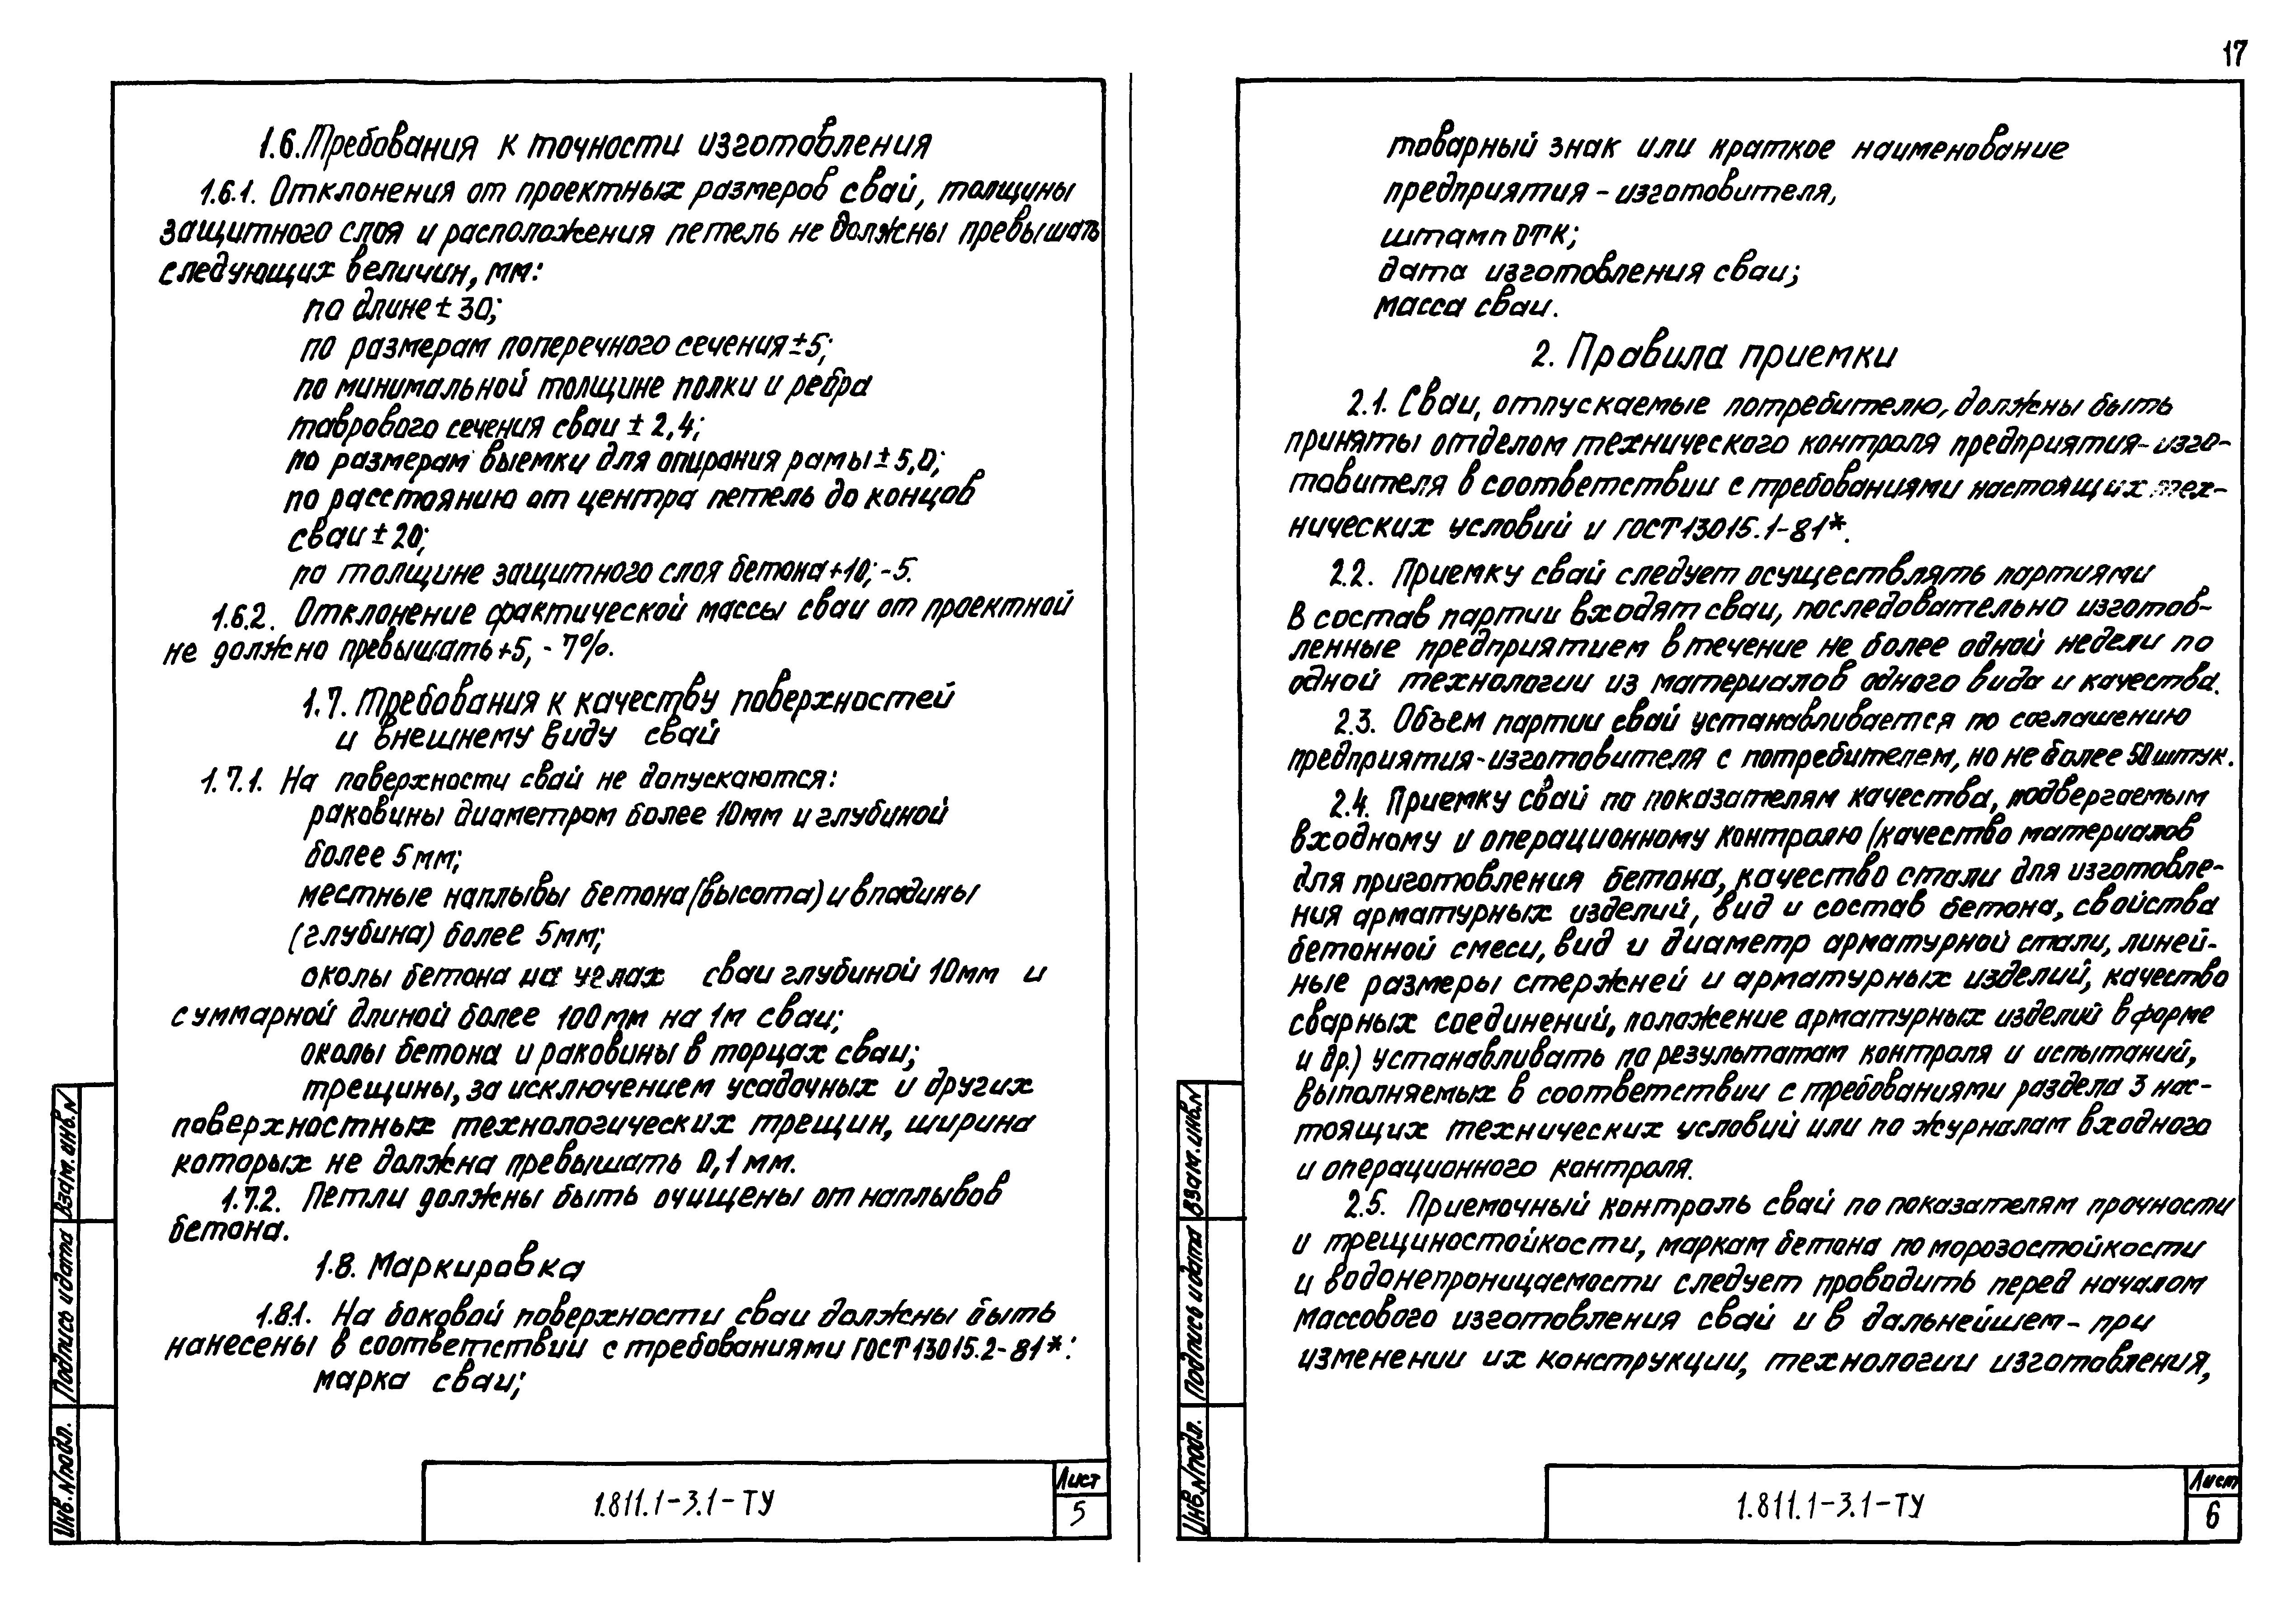 17
1.6. Требования к точности изготовления
1.6.1. Отклонения от проектных размеров свай, толщины
защитного слоя и расположения петель не должны превышать
следующих величин, мм:
по длине ± 30;
по размерам поперечного сечения ± 5;
по минимальной толщине полки и ребра
таврового сечения сваи ± 2,4;
по размерам выемки для опирания рамы ± 5,0;
по расстоянию от центра петель до концов
сваи ± 20;
по толщине защитного слоя бетона +10; -5.
1.6.2. Отклонение фактической массы сваи от проектной
не должно превышать +5, - 7%.
1.7. Требования к качеству поверхностей
и внешнему виду свай
1.7.1. На поверхности свай не допускаются:
раковины диаметром более 10мм и глубиной
более 5мм;
местные наплывы бетона (высота) и впадины
(глубина) более 5мм;
околы бетона на углах сваи глубиной 10мм и
суммарной длиной более 100мм на 1м сваи;
околы бетона и раковины в торцах сваи;
трещины, за исключением усадочных и других
поверхностных технологических трещин, ширина
которых не должна превышать 0,1мм.
1.7.2. Петли должны быть очищены от наплывов
бетона.
1.8. Маркировка
1.8.1. На боковой поверхности сваи должны быть
нанесены в соответствии с требованиями ГОСТ 13015.2-81*:
марка сваи;
Инв. N подл. Подпись и дата Взам. инв. N
1.811.1-3.1-ТУ
Лист
5
товарный знак или краткое наименование
предприятия - изготовителя,
штамп ОТК;
дата изготовления сваи;
масса сваи.
2. Правила приемки
2.1. Сваи, отпускаемые потребителю, должны быть
приняты отделом технического контроля предприятия-изго-
товителя в соответствии с требованиями настоящих тех-
нических условий и ГОСТ 13015.1-81*.
2.2. Приемку свай следует осуществлять партиями
В состав партии входят сваи, последовательно изготов-
ленные предприятием в течение не более одной недели по
одной технологии из материалов одного вида и качества.
2.3. Объем партии свай устанавливается по соглашению
предприятия-изготовителя с потребителем, но не более 50 штук.
2.4. Приемку свай по показателям качества, подвергаемым
входному и операционному контролю (качество материалов
для приготовления бетона, качество стали для изготовле-
ния арматурных изделий, вид и состав бетона, свойства
бетонной смеси, вид и диаметр арматурной стали, линей-
ные размеры стержней и арматурных изделий, качество
сварных соединений, положение арматурных изделий в форме
и др.) устанавливать по результатам контроля и испытаний,
выполняемых в соответствии с требованиями раздела 3 нас-
тоящих технических условий или по журналам входного
и операционного контроля.
2.5. Приемочный контроль свай по показателям прочности
и трещиностойкости, маркам бетона по морозостойкости
и водонепроницаемости следует проводить перед началом
массового изготовления свай и в дальнейшем - при
изменении их конструкции, технологии изготовления,
Инв. N подл. Подпись и дата Взам. инв. N
1.811.1-3.1-ТУ
Лист
6